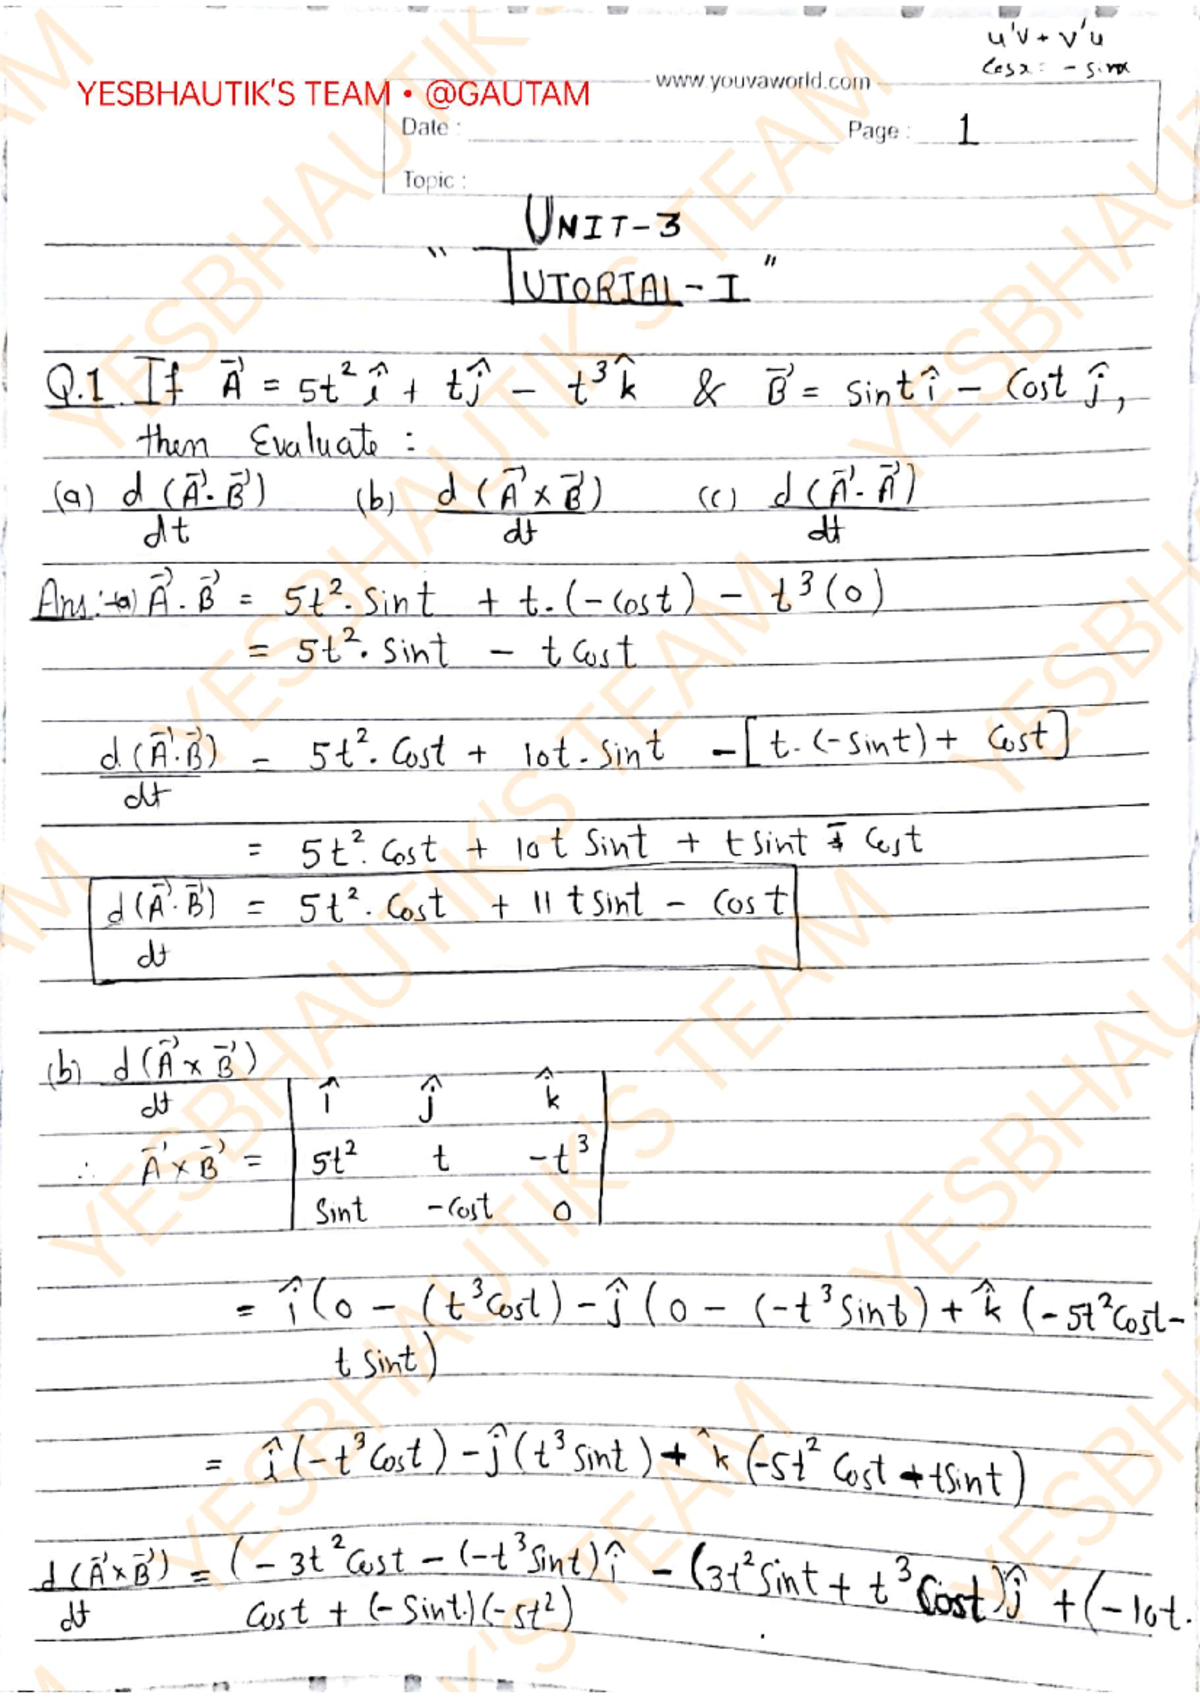 u'v + v'u
Cosx = - sinx
YESBHAUTIK'S TEAM • @GAUTAM
www.youvaworld.com
Date :
Page : 1
Topic :
UNIT-3
" TUTORIAL-I "
Q.1. If A⃗ = 5t² î + tĵ - t³ k̂ & B⃗ = sint î - Cost ĵ,
then Evaluate :
(a) d (A⃗·B⃗)/dt (b) d (A⃗ × B⃗)/dt (c) d (A⃗·A⃗)/dt
Ans:→a) A⃗·B⃗ = 5t²·Sint + t·(-Cost) - t³(0)
= 5t²·Sint - t Cost
d(A⃗·B⃗)/dt = 5t²·Cost + 10t·Sint - [t·(-Sint) + Cost]
= 5t²·Cost + 10t Sint + t Sint - Cost
d(A⃗·B⃗)/dt = 5t²·Cost + 11 t Sint - Cos t
(b) d(A⃗ × B⃗)/dt
î ĵ k̂
∴ A⃗ × B⃗ = 5t² t -t³
Sint -Cost 0
= î(0 - (t³Cost) - ĵ(0 - (-t³Sint) + k̂ (-5t²Cost-
t Sint)
= î(-t³Cost) - ĵ(t³ Sint) + k̂ (-5t² Cost + tSint)
d(A⃗×B⃗)/dt = (-3t²Cost - (-t³Sint) î - (3t²Sint + t³ Cost)ĵ + (-10t.
Cost + (-Sint.)(-5t²)
YESBHAUTIK'S TEAM
YESBHAUTIK'S TEAM
YESBHAUTIK'S TEAM
YESBHAUTIK'S TEAM